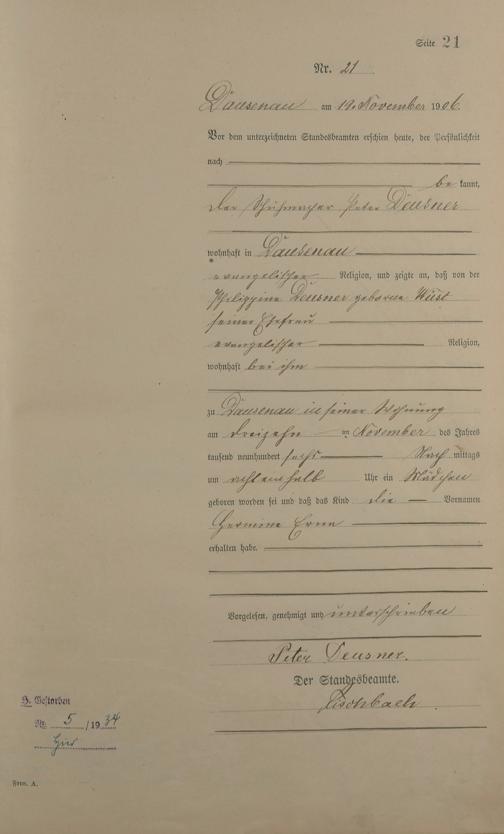 Seite 21
Nr. 21
Dausenau am 19. November 1906.
Vor dem unterzeichneten Standesbeamten erschien heute, der Persönlichkeit
nach
be kannt,
der Schuhmacher Peter Deusner
wohnhaft in Dausenau
evangelischer Religion, und zeigte an, daß von der
Philippine Deusner geborene Wüst
seiner Ehefrau
evangelischer Religion,
wohnhaft bei ihm
zu Dausenau in seiner Wohnung
am dreizehn ten November des Jahres
tausend neunhundert sechs Nach mittags
um acht einhalb Uhr ein Mädchen
geboren worden sei und daß das Kind die Vornamen
Hermine Erna
erhalten habe.
Vorgelesen, genehmigt und unterschrieben
Peter Deusner.
Der Standesbeamte.
Fischbach.
H. Gestorben
Nr. 5 /1934
hier
Form. A.